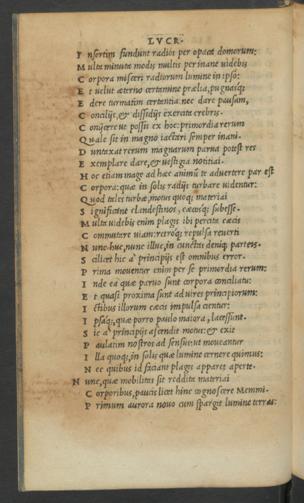 LVCR.
I nsertim fundunt radios per opaca domorum:
M ulta minuta modis multis per inane uidebis
C orpora misceri radiorum lumine in ipso:
E t uelut æterno certamine prælia, pugnasq;
E dere turmatim certantia: nec dare pausam,
C oncilijs, & dissidijs exercita crebris.
C onijcere ut possis ex hoc: primordia rerum
Q uale sit in magno iactari semper inani.
D untaxat rerum magnarum parua potest res
E xemplare dare, & uestigia notitiai.
H oc etiam magis ad hæc animū te aduertere par est
C orpora: quæ in solis radijs turbare uidentur:
Q uod tales turbæ, motus quoq; materiai
S ignificant clandestinos, cæcosq; subesse.
M ulta uidebis enim plagis ibi percita cæcis
C ommutare uiam: retroq; repulsa reuerti
N unc huc, nunc illuc, in cunctas deniq; partes.
S cilicet hic a' principijs est omnibus error.
P rima mouentur enim per se primordia rerum:
I nde ea quæ paruo sunt corpora conciliatu:
E t quasi proxima sunt ad uires principiorum:
I ctibus illorum cæcis impulsa cientur:
I psaq;, quæ porro paulo maiora, lacessunt.
S ic a' principijs ascendit motus: & exit
P aulatim nostros ad sensus: ut moueantur
I lla quoq;, in solis quæ lumine cernere quimus:
N ec quibus id faciant plagis apparet aperte.
N unc, quæ mobilitas sit reddita materiai
C orporibus, paucis licet hinc cognoscere Memmi.
P rimum aurora nouo cum spargit lumine terras: